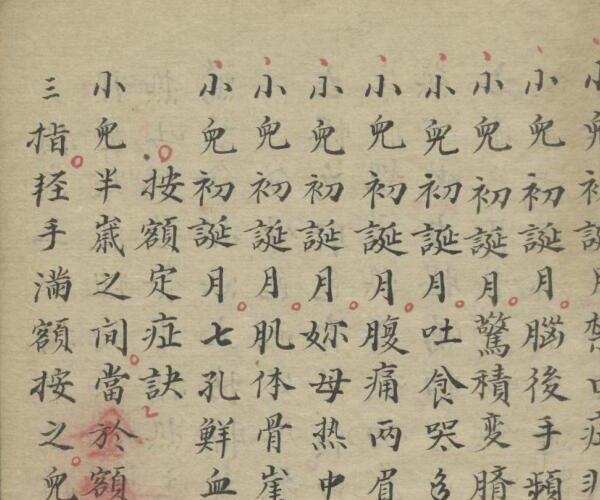 小兒初誕月禁口症
小兒初誕月腦後手頻
小兒初誕月驚積變臍
小兒初誕月吐食哭
小兒初誕月腹痛兩眉
小兒初誕月妳母热中
小兒初誕月肌体骨崖
小兒初誕月七孔鮮血
按額定症訣
小兒半嵗之间當於額
三指轻手滿額按之兒